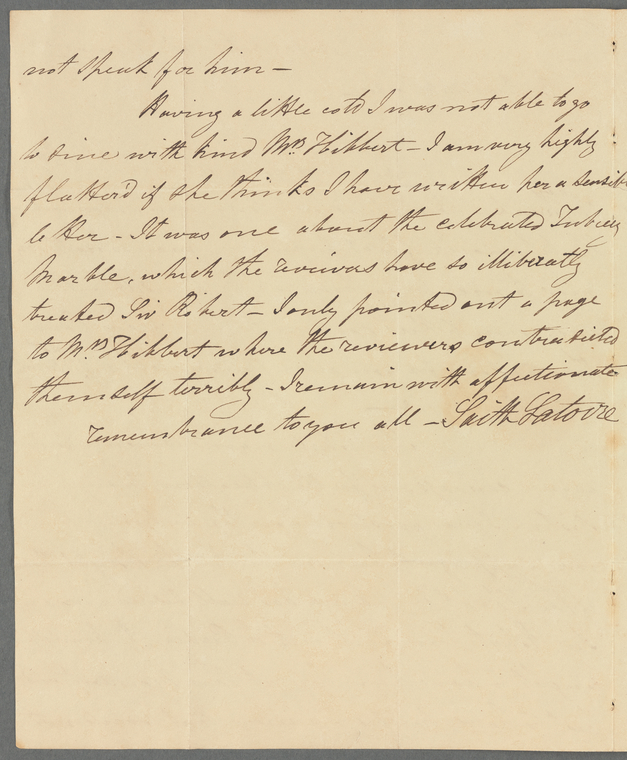 not speak for him —
Having a little cold I was not able to go
to dine with kind Mrs Hibbert — I am very highly
flatterd if she thinks I have written her a sensible
letter — It was one about the celebrated
Marble, which the have so illiberatly
treated Sir Robert — I only pointed out a page
to Mrs Hibbert where the reviewers contradicted
themself terribly — I remain with affectionate
remembrance to you all — Latorre